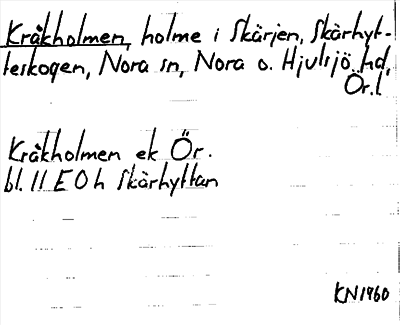 Kråkholmen, holme i Skärjen, Skärhyt-
teskogen, Nora sn, Nora o. Hjulsjö hd,
Ör.l.
Kråkholmen ek Ör.
bl. 11 E 0 h Skärhyttan
KN1960